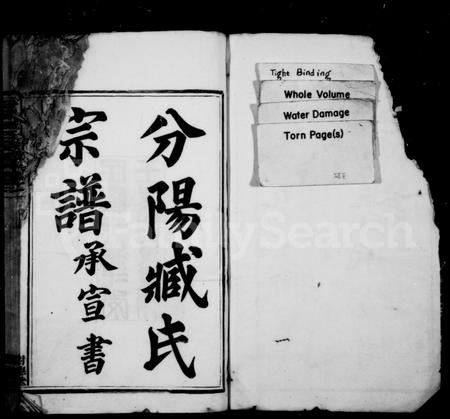 分陽臧氏
宗譜承宣書
Tight Binding
Whole Volume
Water Damage
Torn Page(s)
FamilySearch